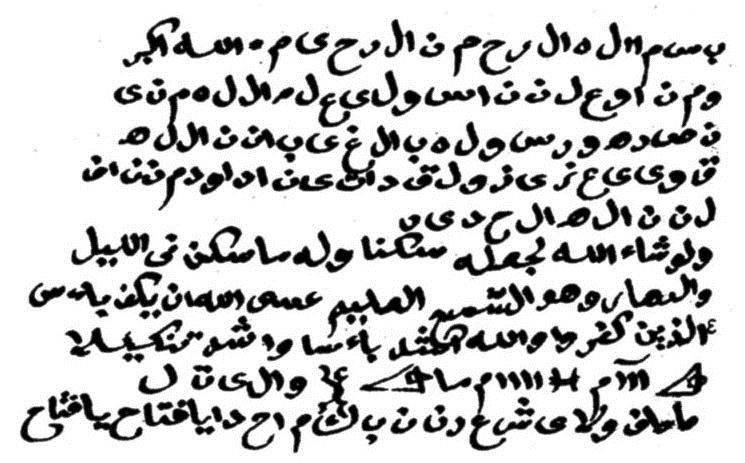 ب س م ا ل ل ه ال ر ح م ن ال ر ح ی م • الله اکبر
و م ن ا و ع ل ن ن ا س و ل ی ع ل م ال ل ه م ن ی
ن ص ر ه و ر س و ل ه ب ال غ ی ب ا ن ن ال ل ه
ق و ی ی ع ز ی ز و ل ق د ا ت ی ن ا د ا و د م ن ن ا
ل ن ن ا ل ه ال ح د ی د
ولو شاء الله لجعله سكنا وله ما سكن فى الليل
والنهار وهو السميع العليم عسى الله ان يكف باءس
الذين كفروا والله اشد باءسا واشد تنكيلا
م م ا وال ى ق ل
ولا ى ش ع ر ن ن ب ك م ا ح د ا يا فتاح يا فتاح